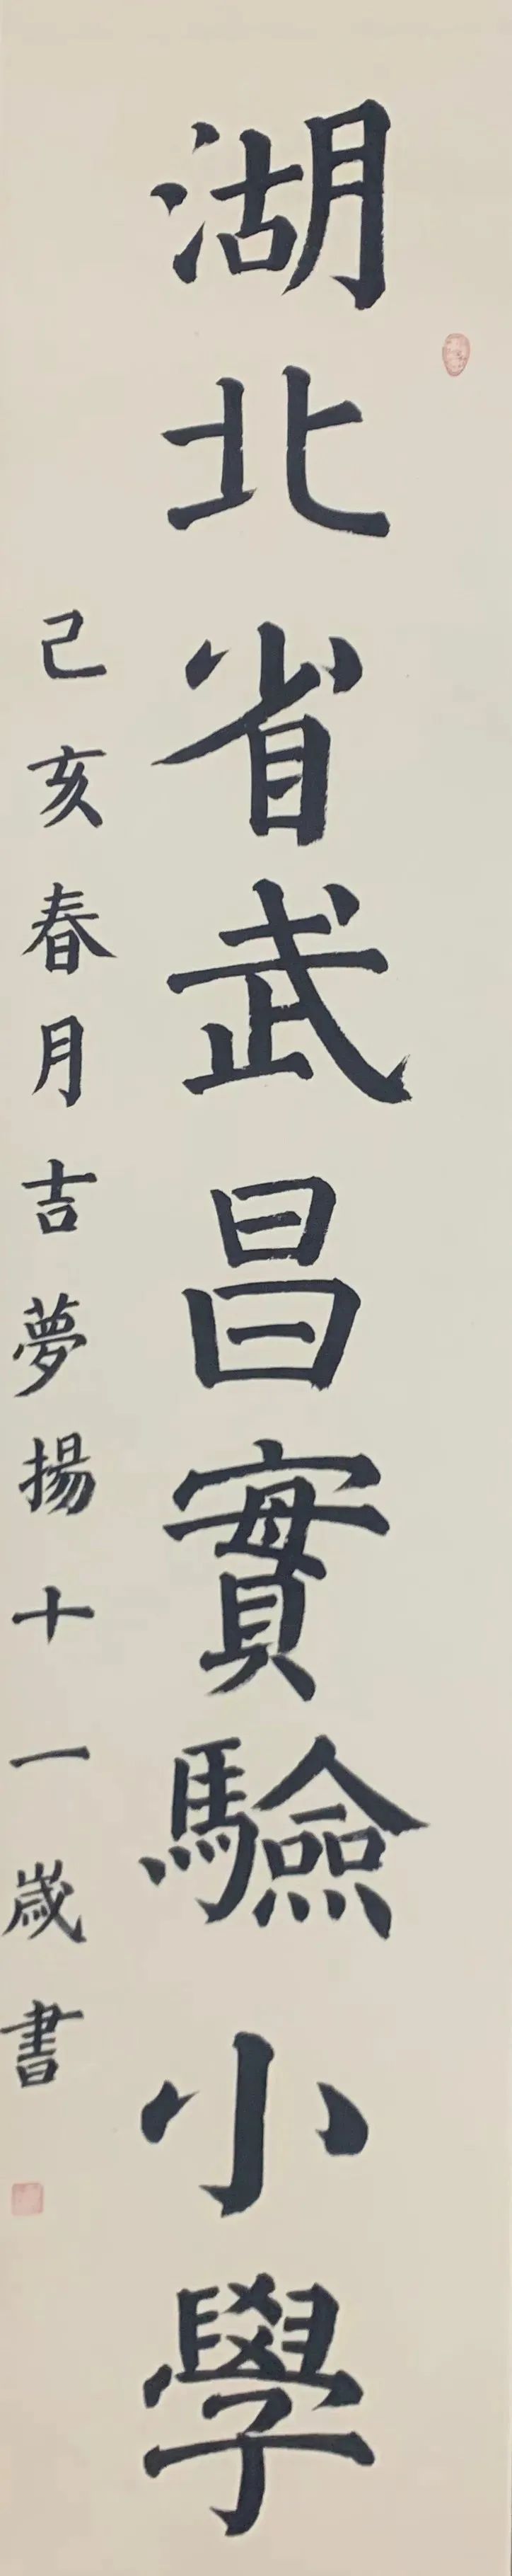 湖北省武昌實驗小學
己亥春月吉夢揚十一歲書